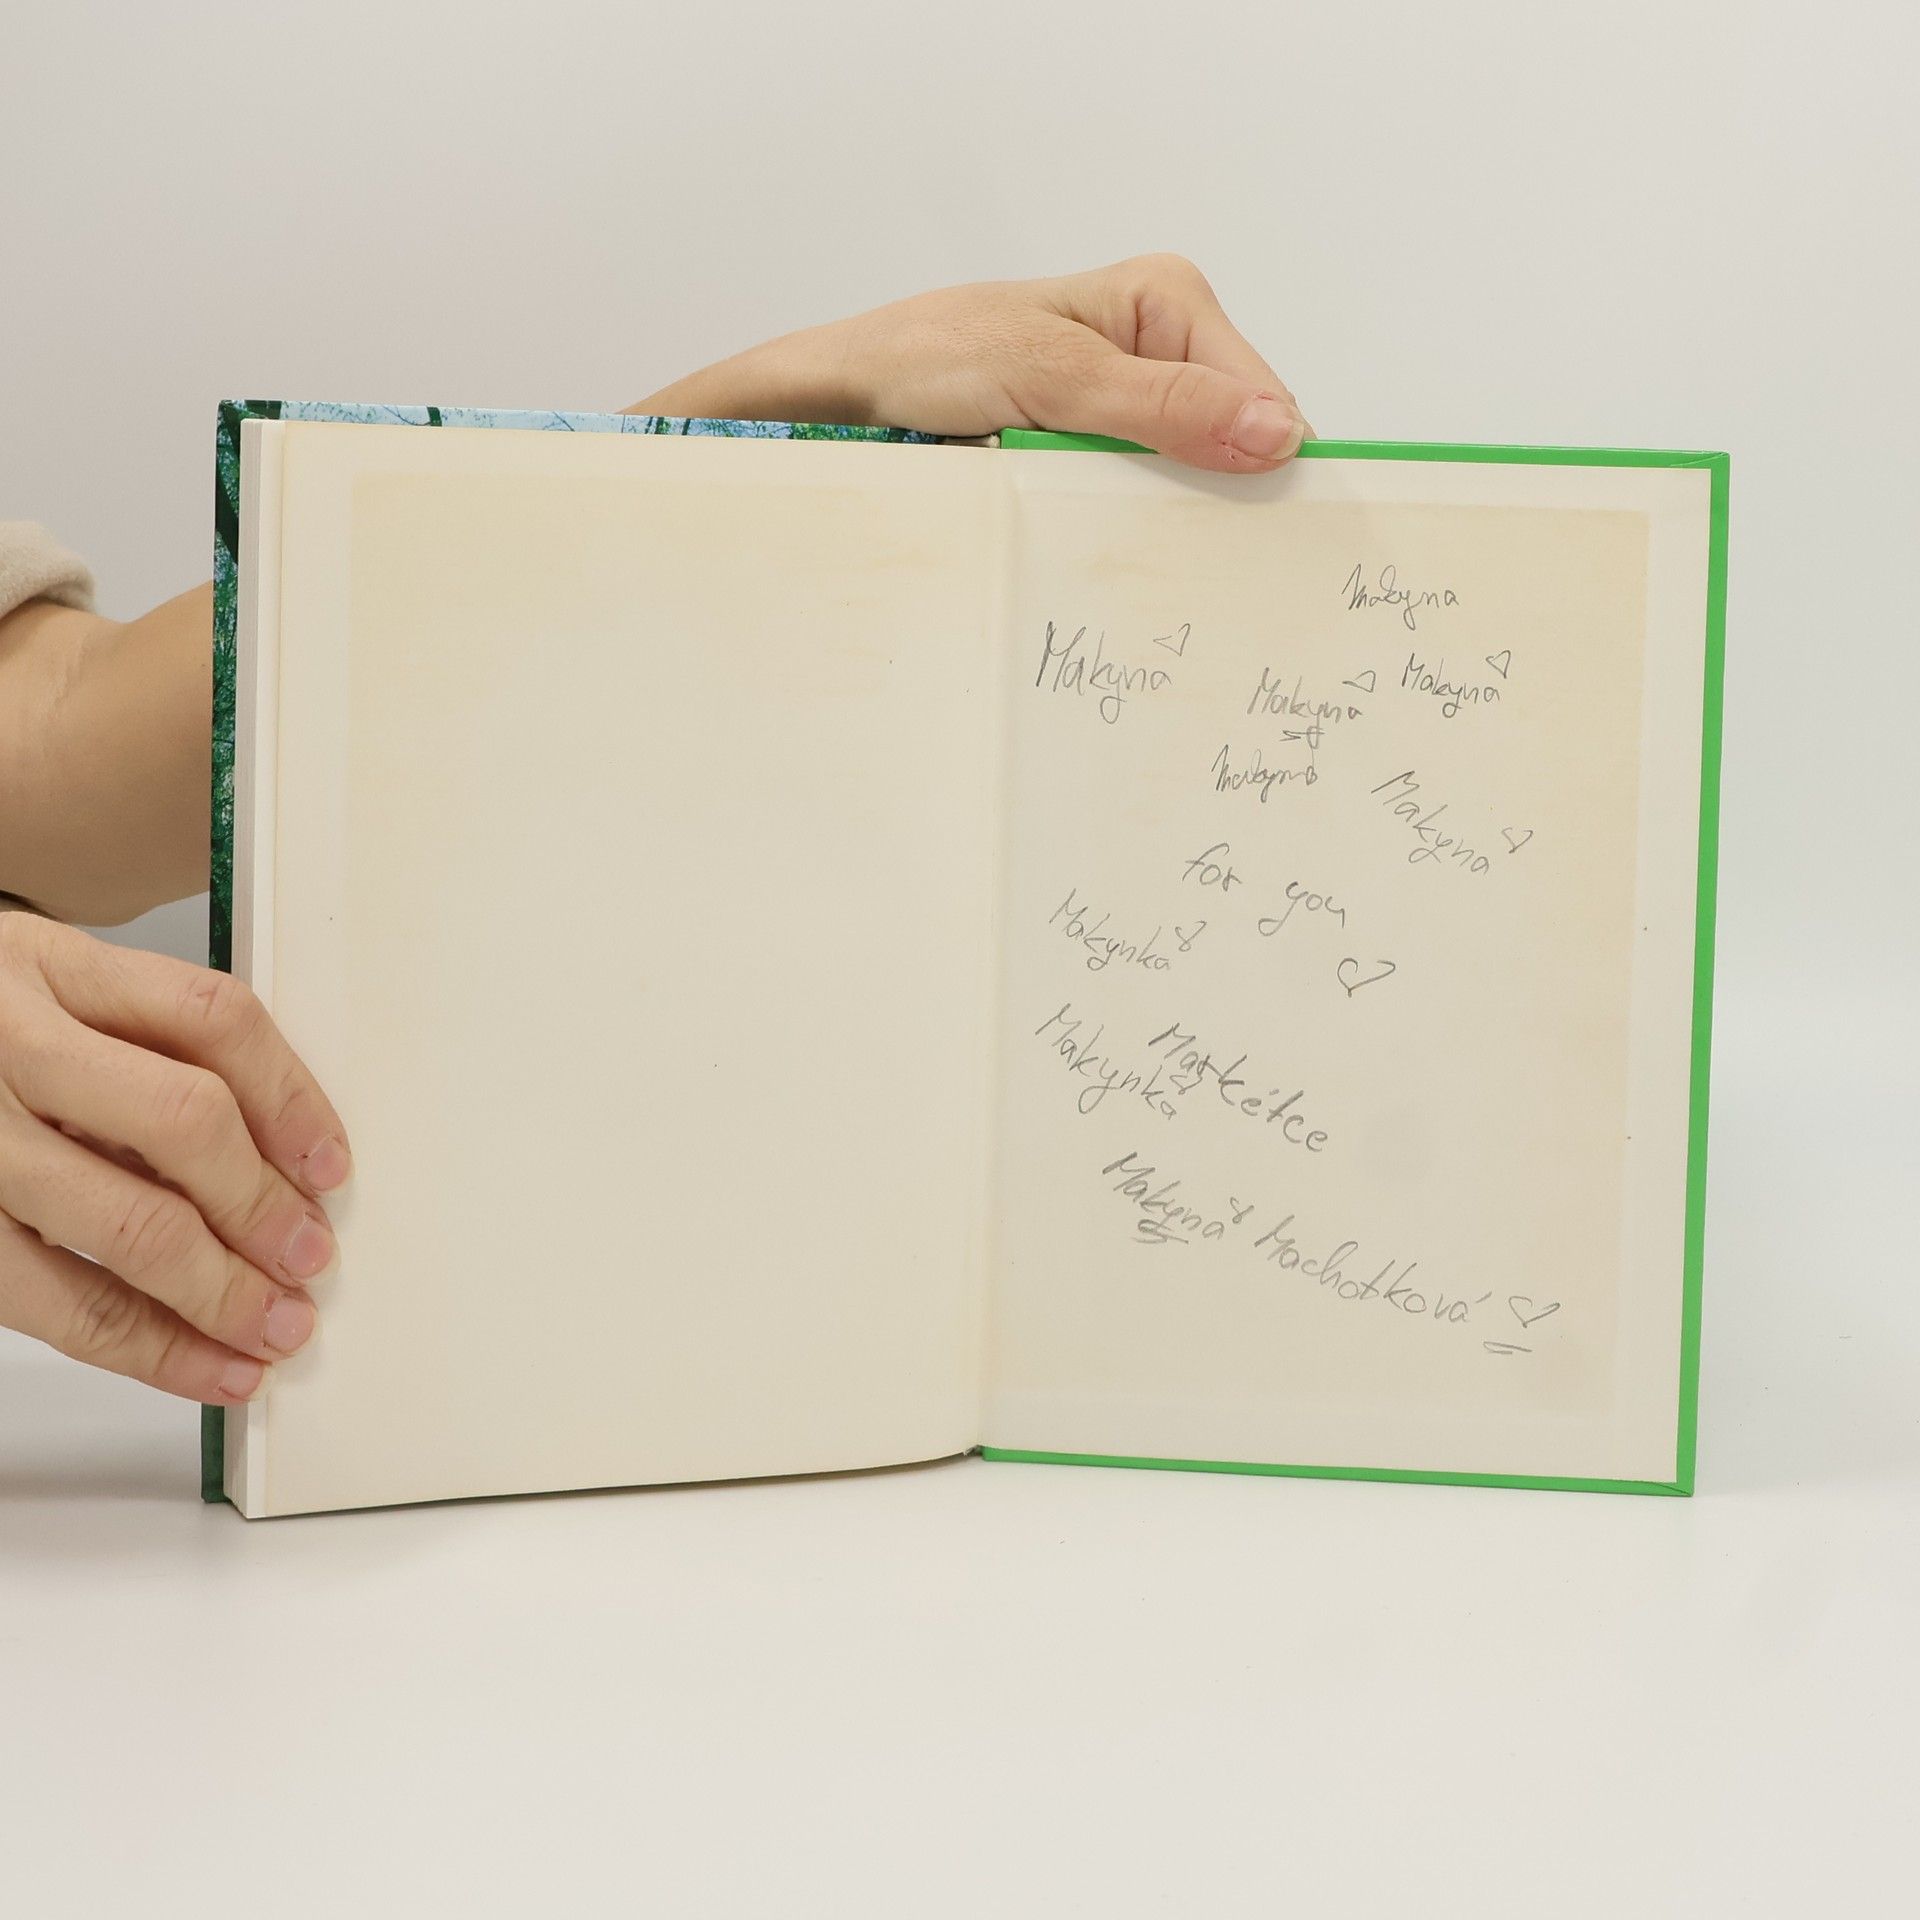 Makyna
Makyna ♡
Makyna ♡
Makyna ♡
Makyna
Makyna ♡
for you
♡
Makynka ♡
Makynka ♡
Markétce
Makyna ♡ Machotková ♡